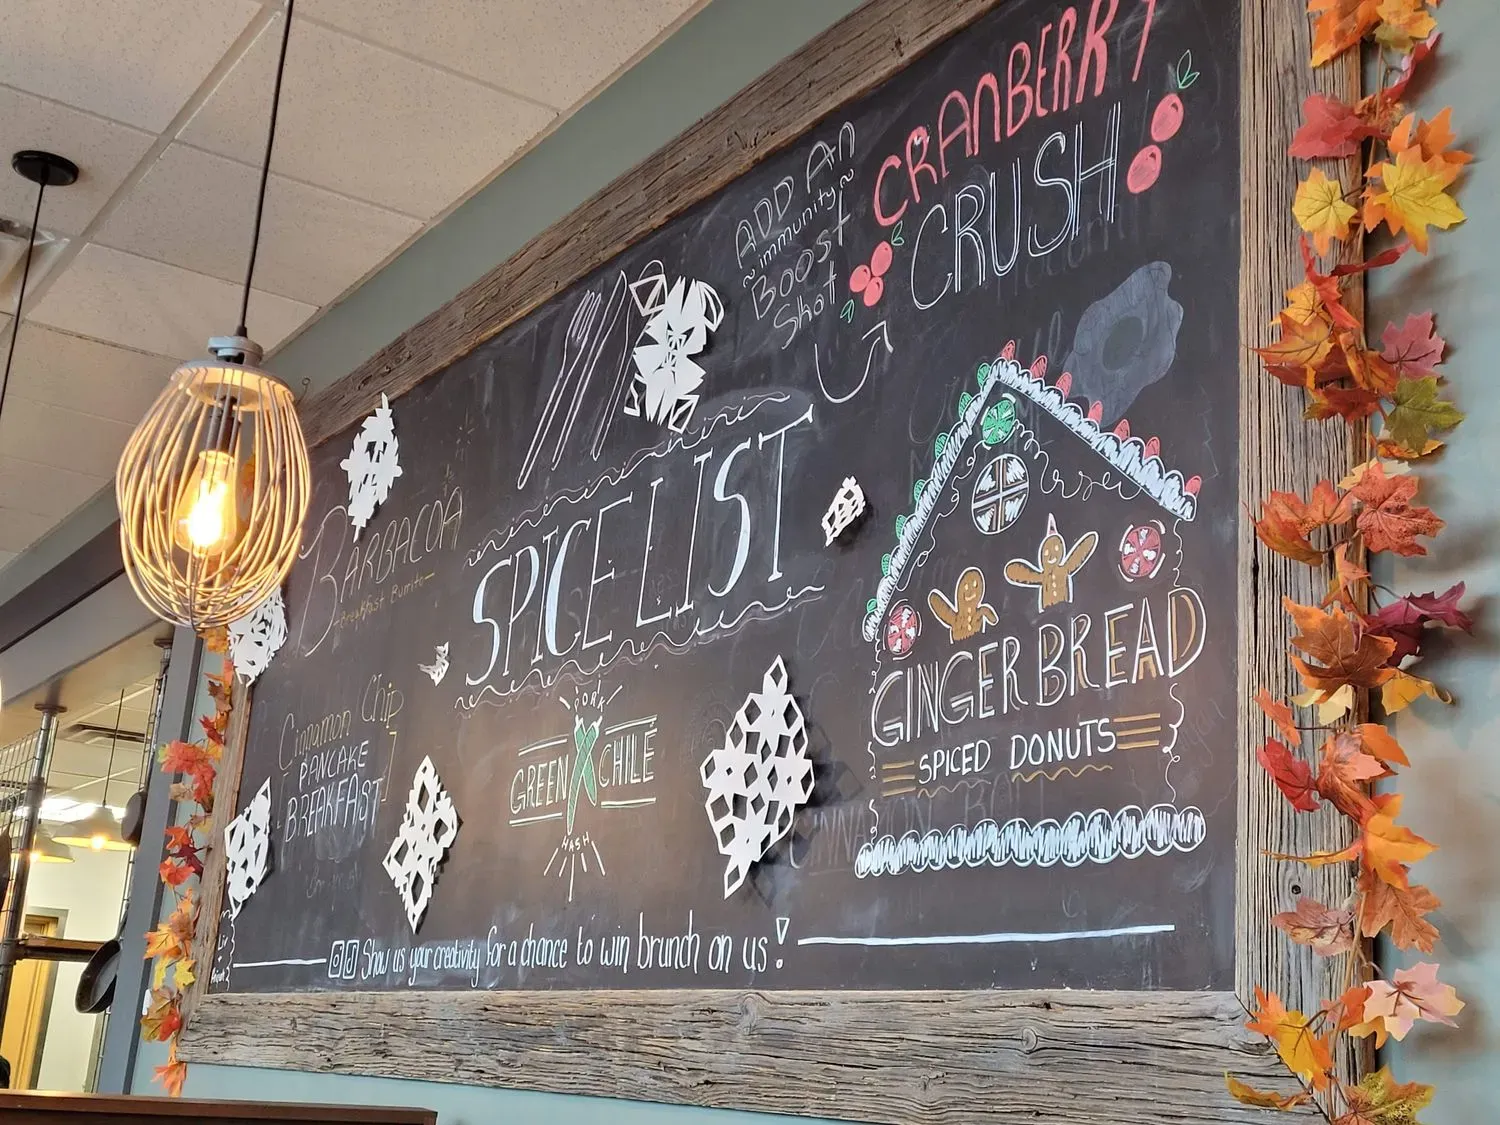 CRANBERRY
CRUSH
ADD AN
~immunity~
BOOST
Shot
SPICE LIST
BARBACOA
-Breakfast Burrito-
Cinnamon Chip
PANCAKE
BREAKFAST
PORK
GREEN CHILE
HASH
GINGERBREAD
SPICED DONUTS
CINNAMON ROLL
Show us your creativity for a chance to win brunch on us!